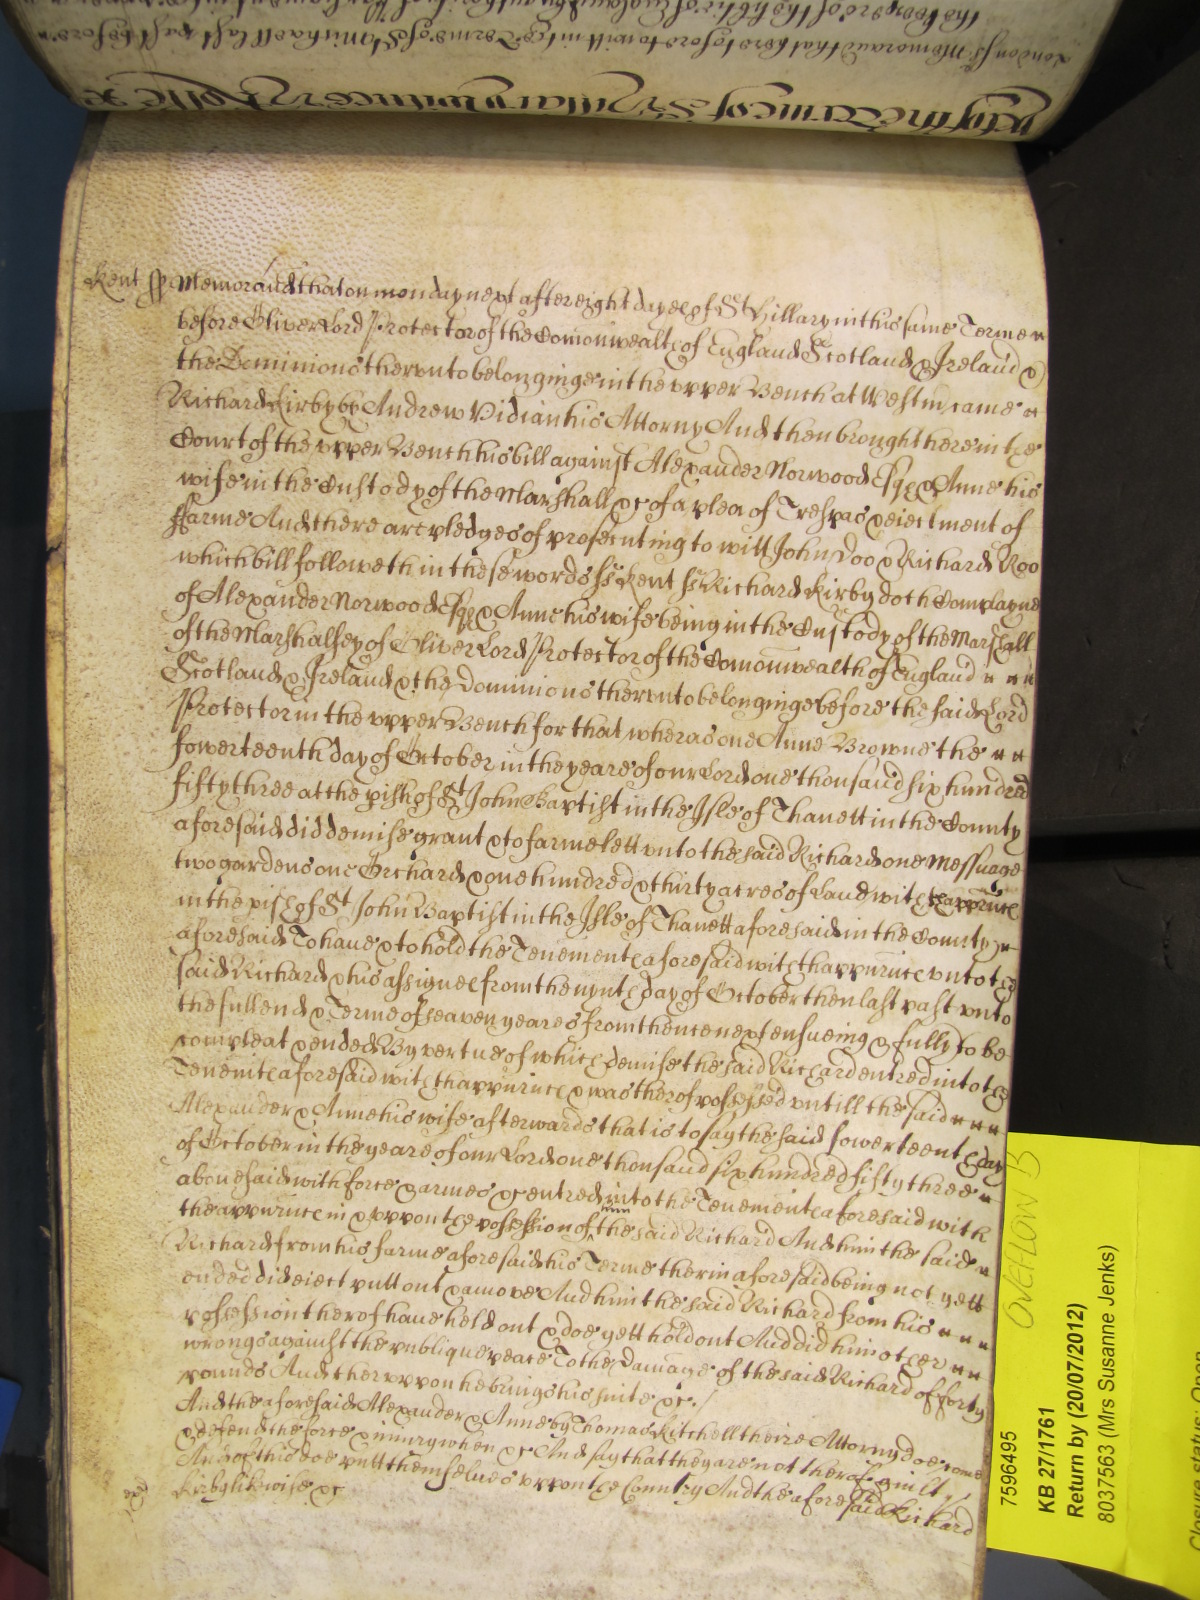 Kent ss Memorand that on monday next after eight dayes of St Hillary in this same Terme
before Oliver Lord Protector of the Comonwealth of England Scotland & Ireland &
the Dominions therunto belonginge in the upper Bench at Westm came
Richard Kirby by Andrew Vidian his Attorny And then brought here in the
Court of the upper Bench his bill against Alexander Norwood Esqr & Anne his
wife in the Custody of the Marshall &c of a plea of Trespas & eiectment of
ffarme And there are pledges of prosecuting to witt John Doo & Richard Roo
which bill followeth in these words ss Kent ss Richard Kirby doth Complayne
of Alexander Norwood Esqr & Anne his wife being in the Custody of the Marshall
of the Marshalsey of Oliver Lord Protector of the Comonwealth of England
Scotland & Ireland & the Dominions therunto belonginge before the said Lord
Protector in the upper Bench for that wheras one Anne Browne the
fowerteenth day of October in the yeare of our Lord one thousand six hundred
fifty three at the pish of St John Baptist in the Isle of Thanett in the County
aforesaid did demise grant & to farme lett unto the said Richard one Messuage
two gardens one Orchard & one hundred & thirty acres of Land with thappurtnce
in the pish of St John Baptist in the Isle of Thanett aforesaid in the County
aforesaid To haue & to hold the Tenemente aforesaid with thappurtnce unto the
said Richard & his assignes from the nynth day of October then last past unto
the full end & Terme of seaven yeares from thence next ensueing & fully to be
compleat & ended By vertue of which demise the said Richard entred into the
Tenemte aforesaid with thappurtnce & was therof possessed untill the said
Alexander & Anne his wife afterwards that is to say the said fowerteenth day
of October in the yeare of our Lord one thousand six hundred fifty three
abouesaid with force & armes &c entred into the Tenemente aforesaid with
thappurtnce in & uppon the possession of him the said Richard And him the said
Richard from his farme aforesaid his Terme therin aforesaid being not yett
ended did eiect putt out & amove And him the said Richard from his
possession therof haue held out & doe yett hold out And did him other
wrongs against the publique peace To the Damage of the said Richard of forty
pounds And theruppon he brings his suite &c.
And the aforesaid Alexander & Anne by Thomas Kitchell theire Attorny doe come
& defend the force & iniury when &c And say that they are not therof guilty
And of this doe putt themselues uppon the Country And the aforesaid Richard
Kirby likewise &c
7596495
KB 27/1761
Return by (20/07/2012)
8037563 (Mrs Susanne Jenks)
OVERFLOW B
Closure status: Open